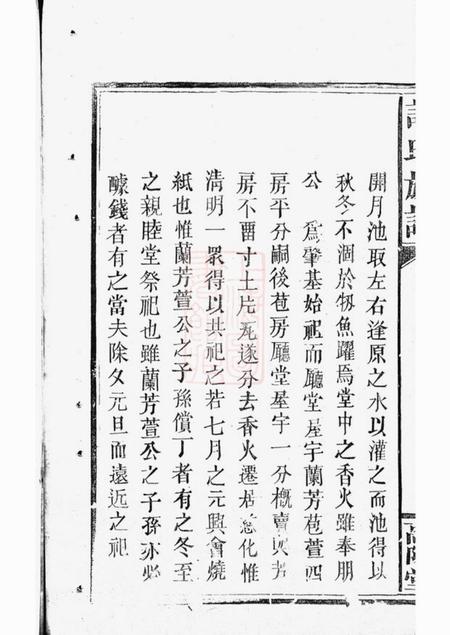 許氏族譜
高陽堂
開月池取左右逢原之水以灌之而池得以
秋冬不涸於牣魚躍焉堂中之香火雖奉朋
公　爲肇基始祖而廳堂屋宇蘭芳苞萱四
房平分嗣後苞房廳堂屋宇一分概賣與芳
房不畱寸土片瓦遂分去香火遷居感化惟
清明一衆得以共祀之若七月之元與會燒
紙也惟蘭芳萱公之子孫償丁者有之冬至
之親睦堂祭祀也雖蘭芳萱公之子孫亦必
醵錢者有之當夫除夕元旦而遠近之祀